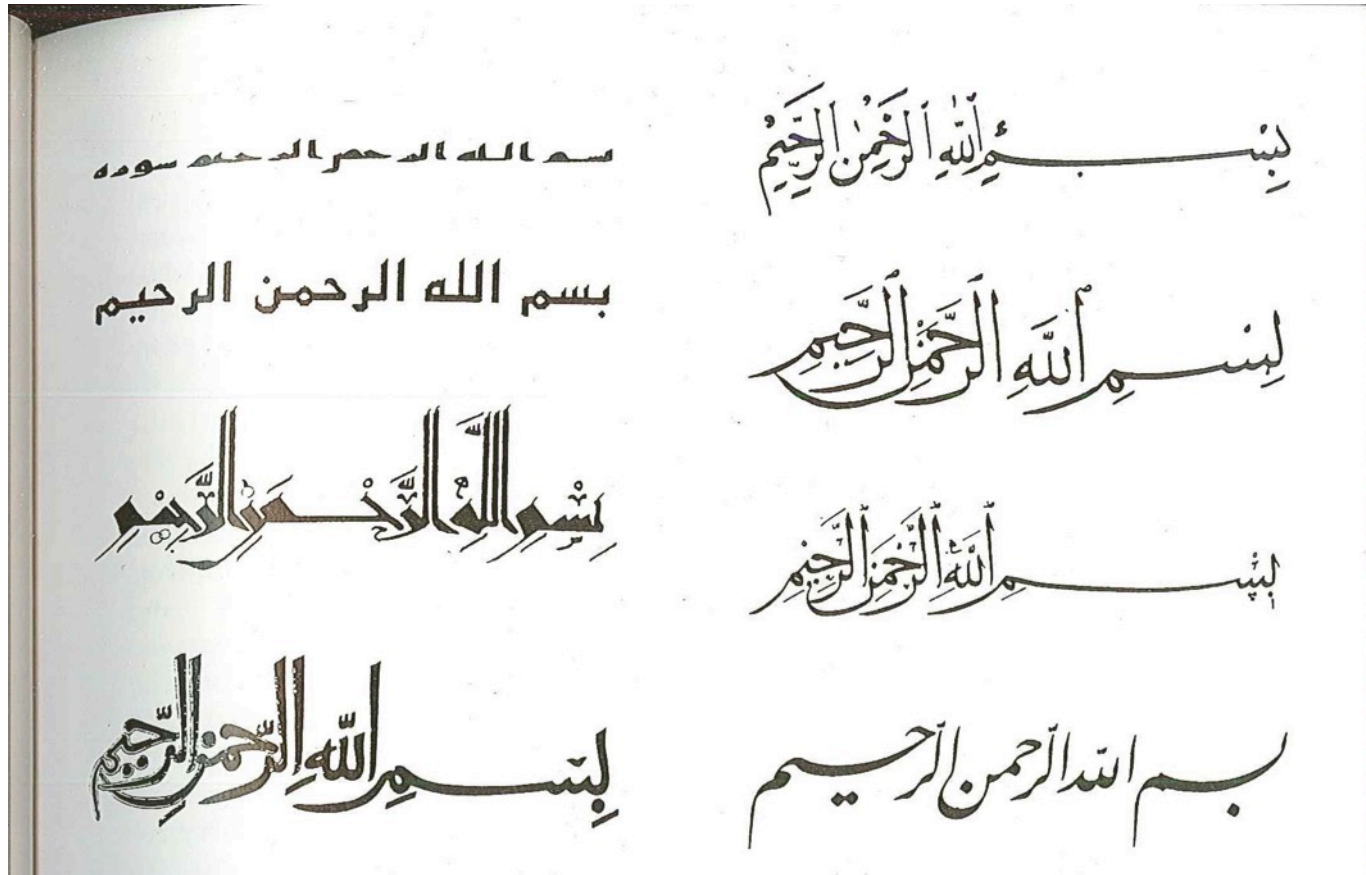 بسم الله الرحمن الرحيم سوره
بسم الله الرحمن الرحيم
بِسْمِ اللَّهِ الرَّحْمَنِ الرَّحِيمِ
بِسْمِ اللَّهِ الرَّحْمنِ الرَّحِيمِ
بِسْمِ ٱللَّهِ ٱلرَّحْمٰنِ ٱلرَّحِيمِ
بِسْمِ اللَّهِ الرَّحْمَنِ الرَّحِيمِ
بِسْمِ اللَّهِ الرَّحْمَنِ الرَّحِيمِ
بسم الله الرحمن الرحيم